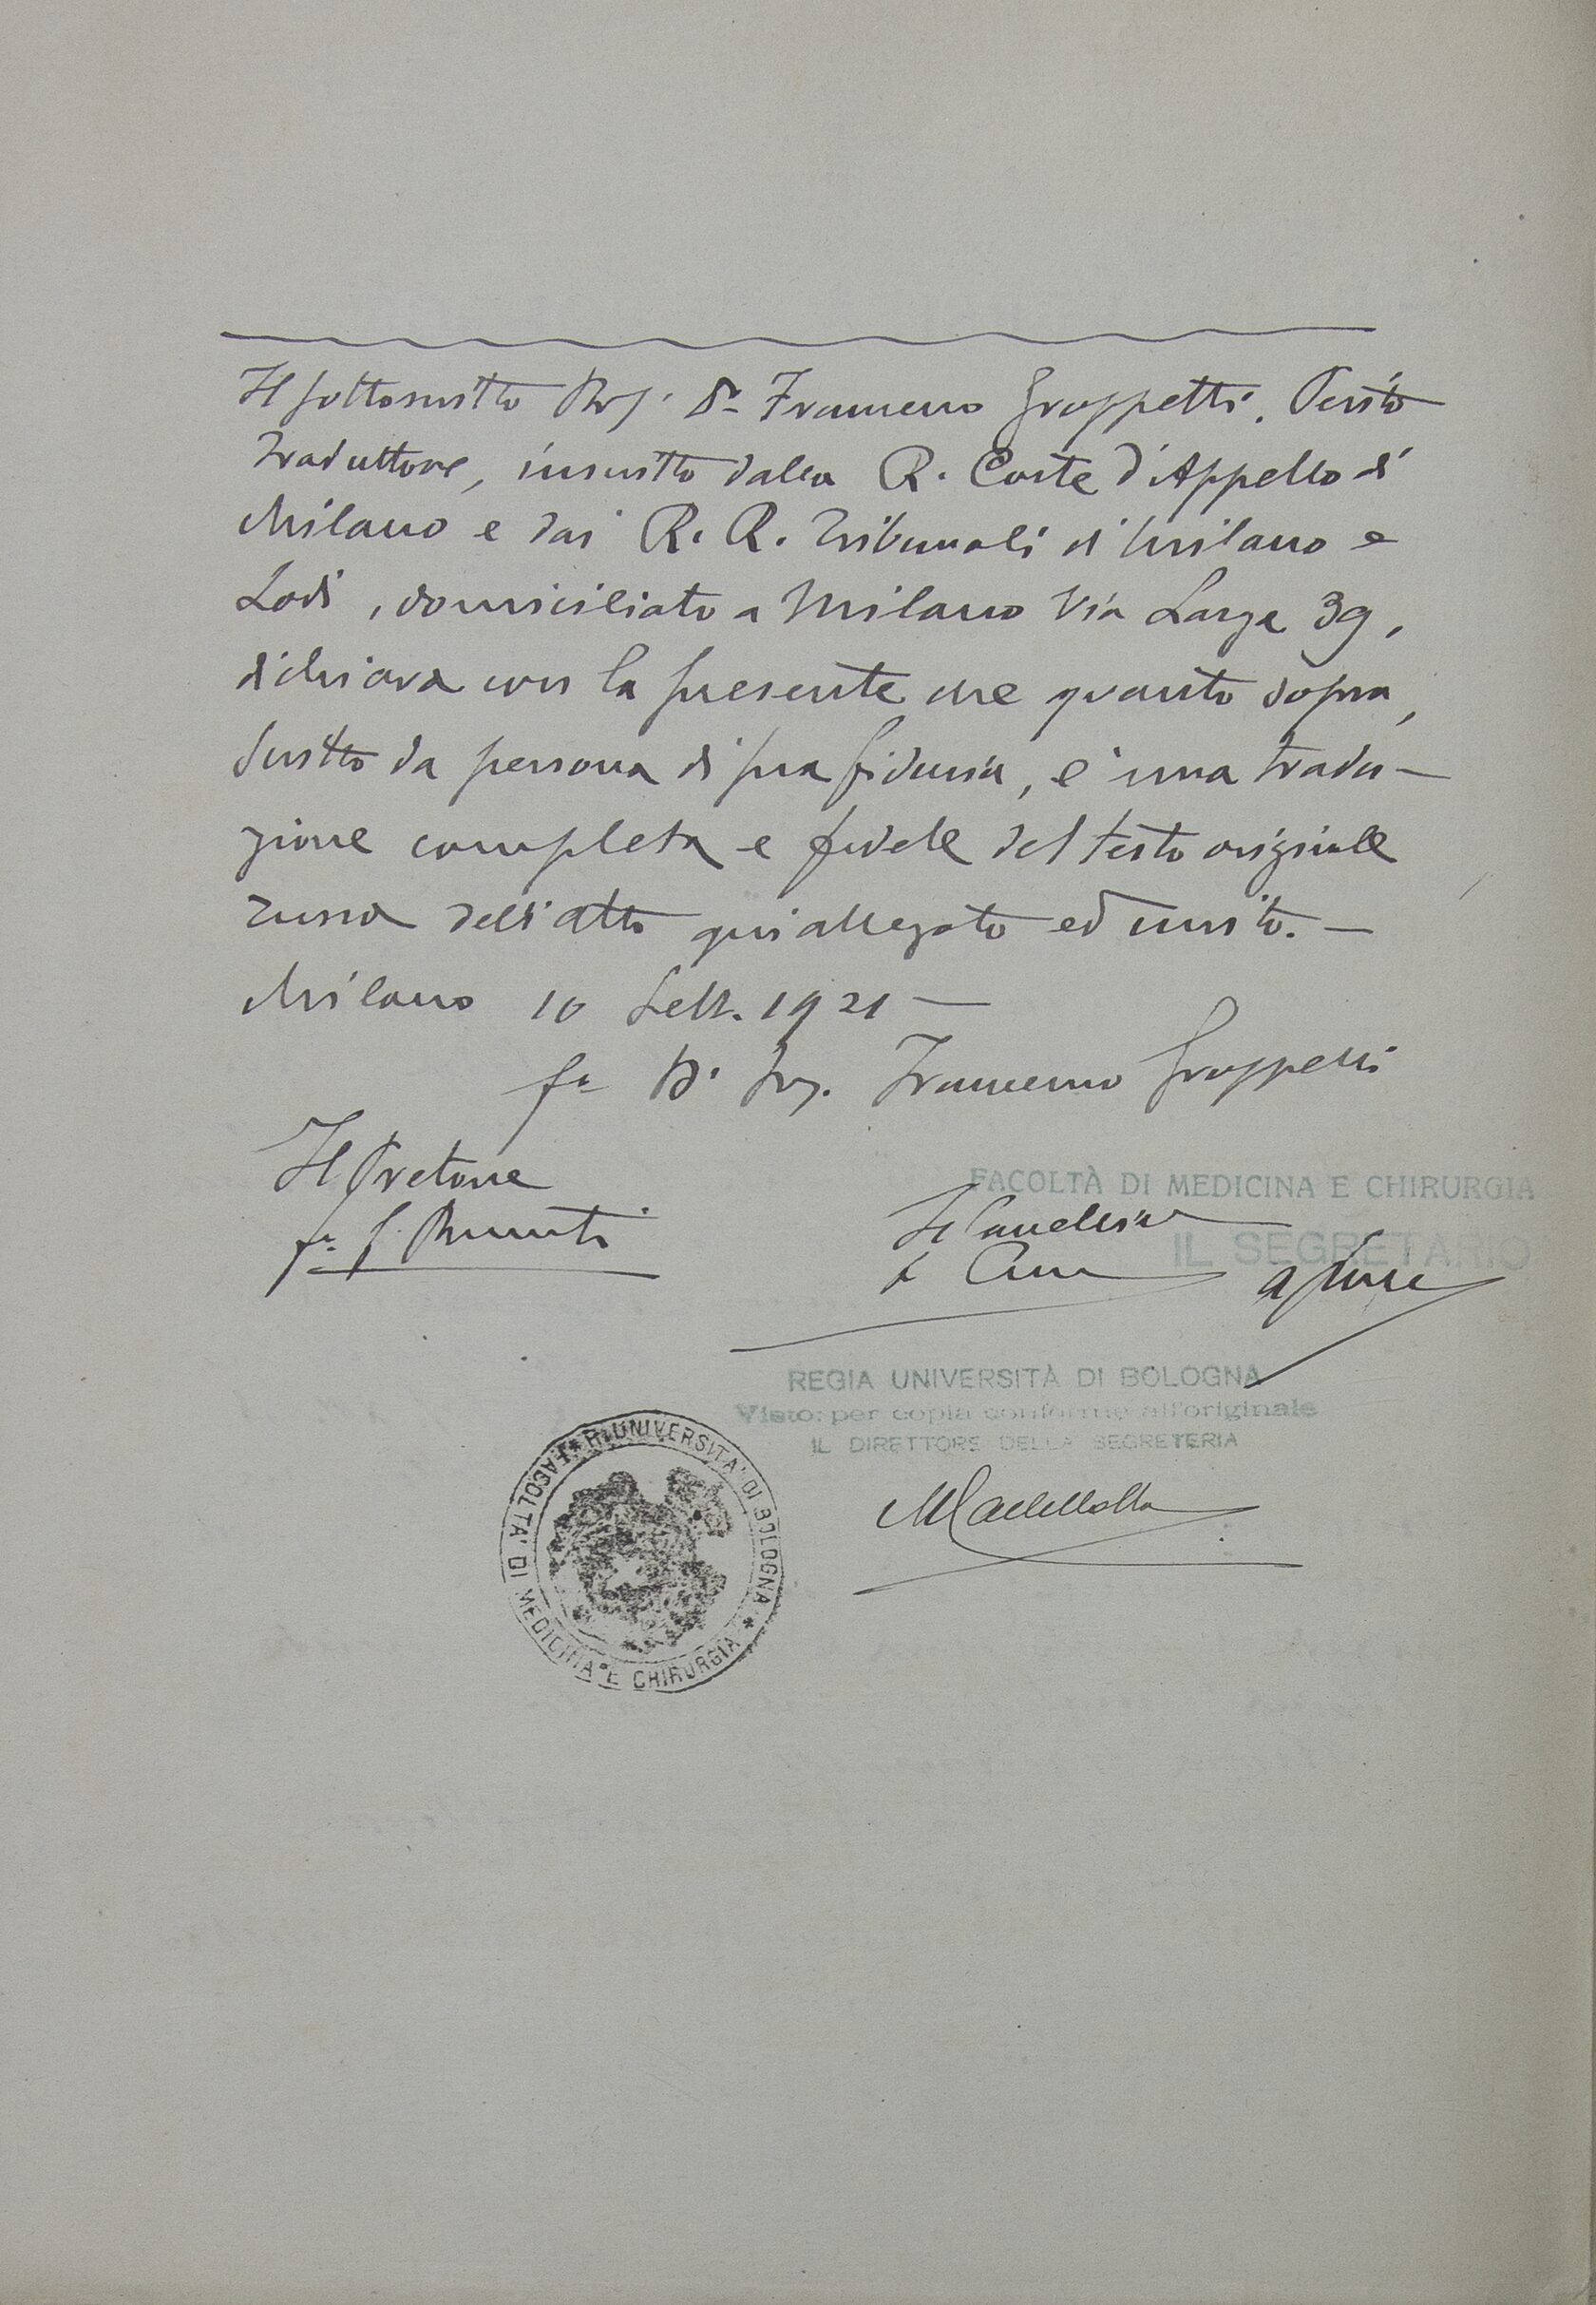 Il sottoscritto Prof. Dr Francesco Groppetti, Perito
Traduttore, inscritto dalla R. Corte d'Appello di
Milano e dai R. R. Tribunali di Milano e
Lodi, domiciliato a Milano Via Larga 39,
dichiara con la presente che quanto sopra,
scritto da persona di sua fiducia, è una tradu-
zione completa e fedele del testo originale
russo dell'atto qui allegato ed unito. —
Milano 10 Sett. 1921 —
fo Dr Prof. Francesco Groppetti
Il Pretore
FACOLTÀ DI MEDICINA E CHIRURGIA
Il Cancelliere
IL SEGRETARIO
REGIA UNIVERSITÀ DI BOLOGNA
Visto: per copia conforme all'originale
IL DIRETTORE DELLA SEGRETERIA
R. UNIVERSITA' DI BOLOGNA * FACOLTA' DI MEDICINA E CHIRURGIA *